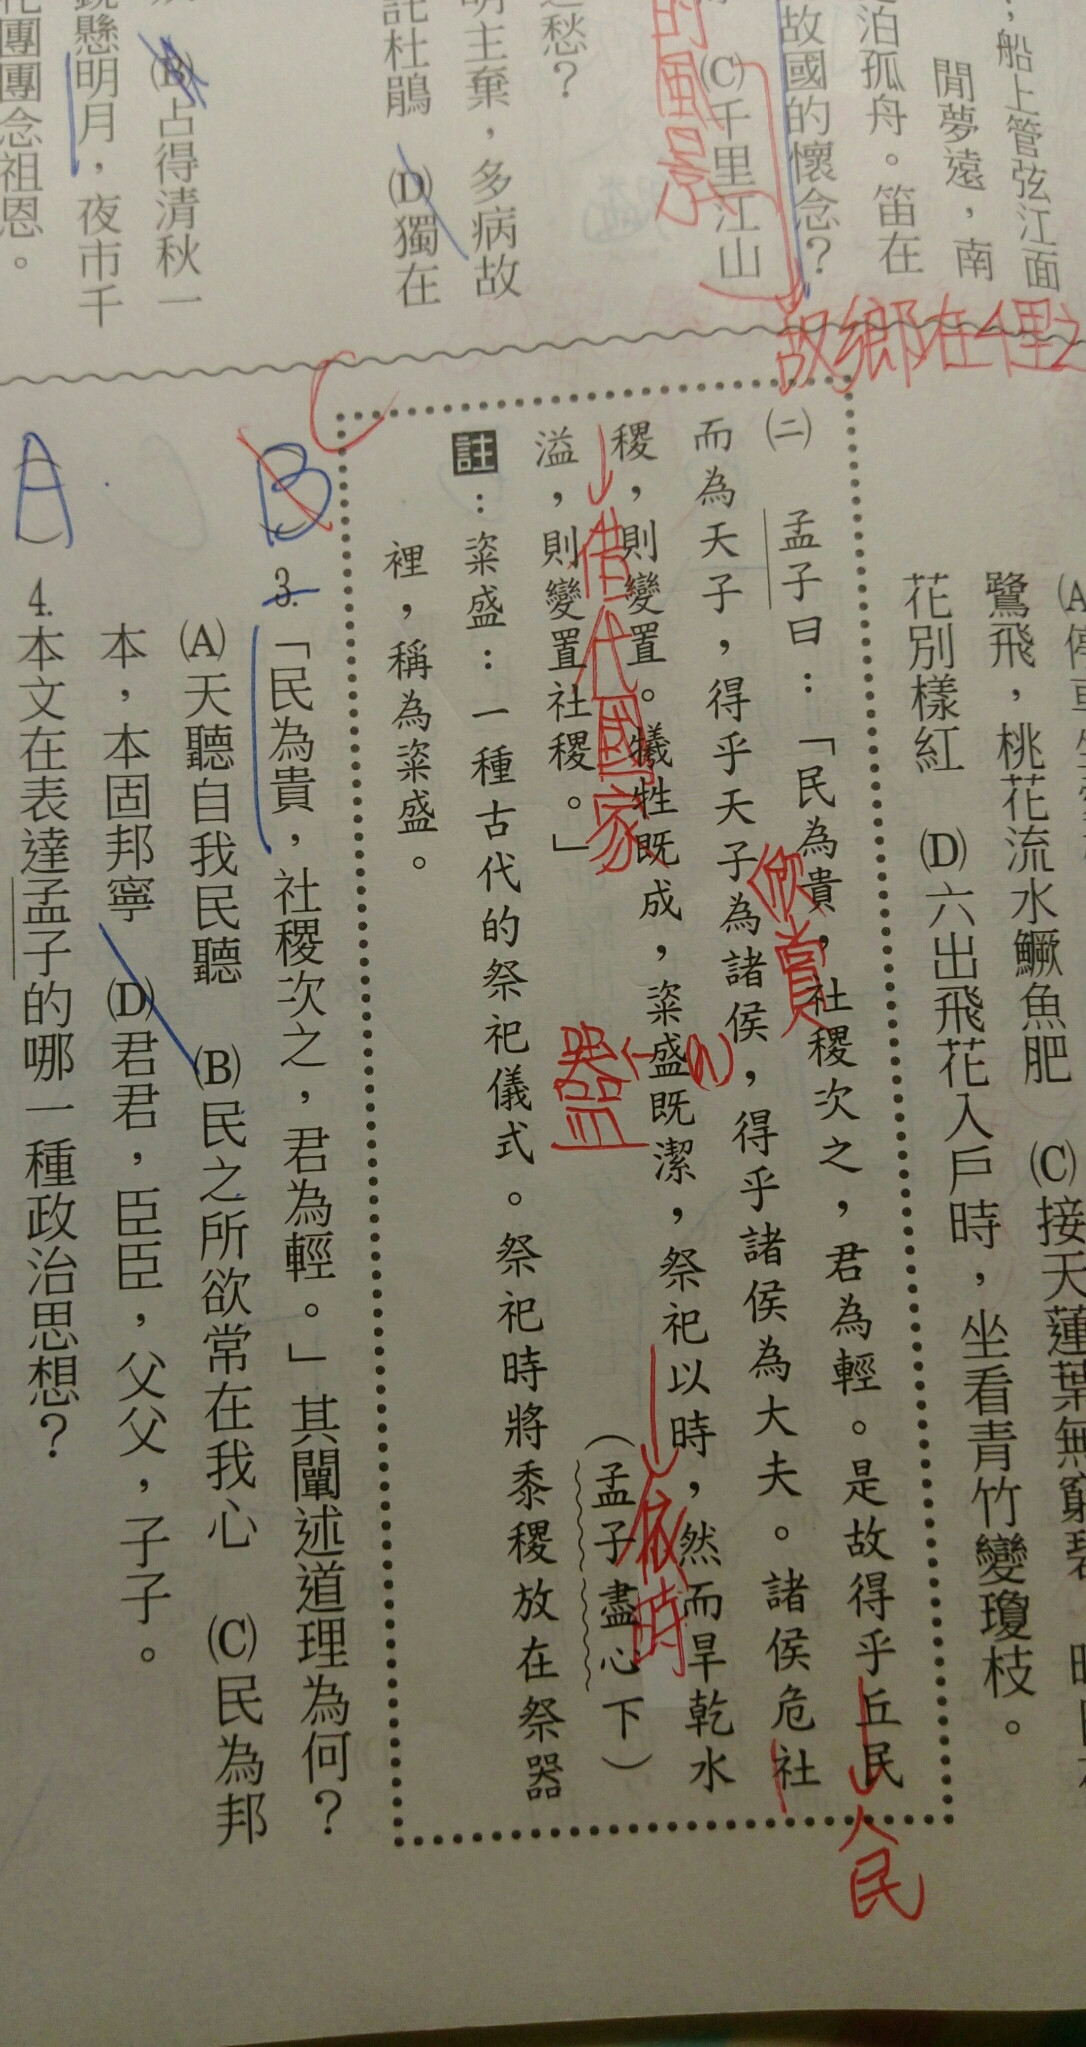 ，船上管弦江面
閒夢遠，南
泊孤舟。笛在
故國的懷念？
(C)千里江山
的風景
故鄉在俚
愁？
明主棄，多病故
託杜鵑　(D)獨在
(B)占得清秋一
鏡懸明月，夜市千
花團團念祖恩。
(C)接天蓮葉無窮碧
鷺飛，桃花流水鱖魚肥
花別樣紅　(D)六出飛花入戶時，坐看青竹變瓊枝。
(二)　孟子曰：「民為貴，社稷次之，君為輕。是故得乎丘民
而為天子，得乎天子為諸侯，得乎諸侯為大夫。諸侯危社
稷，則變置。犧牲既成，粢盛既潔，祭祀以時，然而旱乾水
溢，則變置社稷。」　（孟子盡心下）
註：粢盛：一種古代的祭祀儀式。祭祀時將黍稷放在祭器
裡，稱為粢盛。
人民
欣賞
借代國家
器
依時
C
B
3.「民為貴，社稷次之，君為輕。」其闡述道理為何？
(A)天聽自我民聽　(B)民之所欲常在我心　(C)民為邦
本，本固邦寧　(D)君君，臣臣，父父，子子。
A
4.本文在表達孟子的哪一種政治思想？